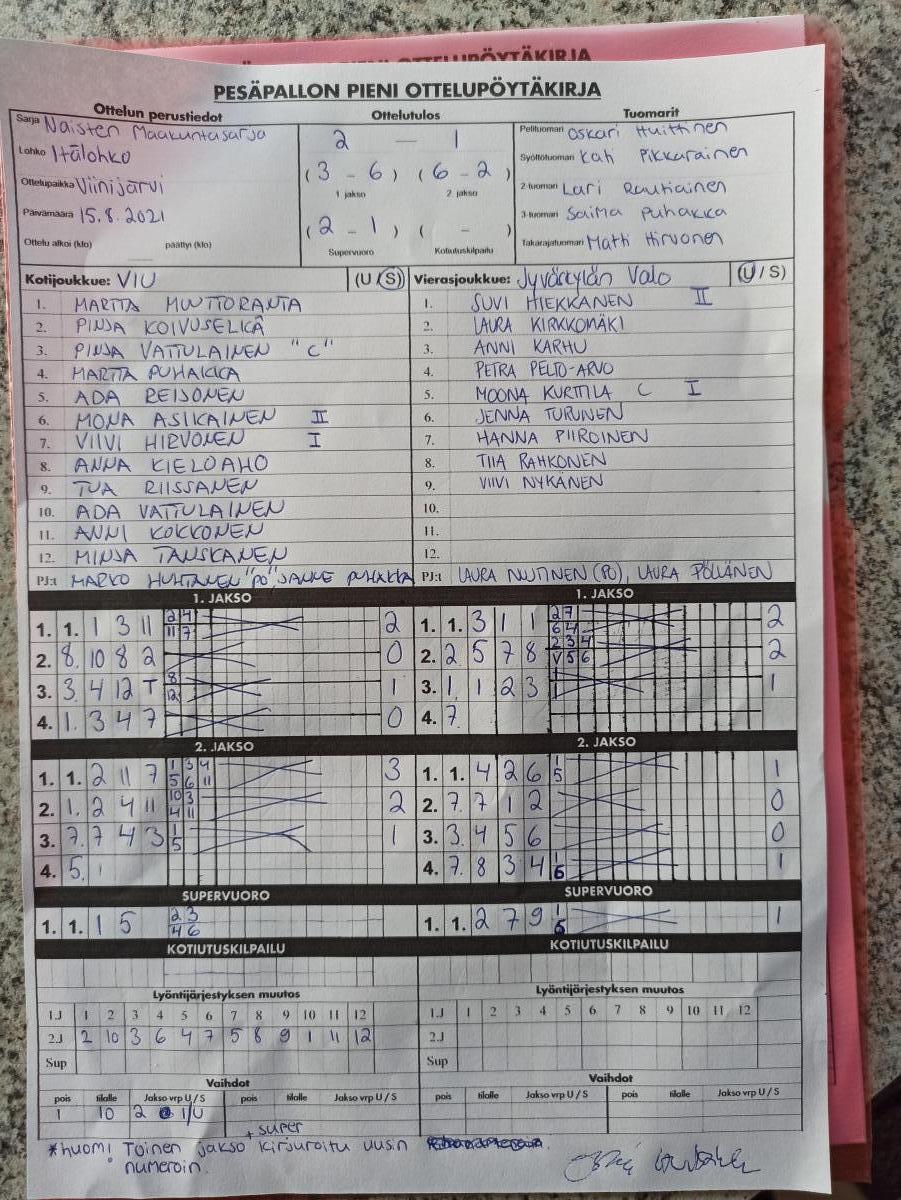 PESÄPALLON PIENI OTTELUPÖYTÄKIRJA
Ottelun perustiedot Ottelutulos Tuomarit
Sarja Naisten Maakuntasarja 2 — 1 Pelituomari Oskari Huittinen
Lohko Itälohko (3 - 6) (6 - 2) Syöttötuomari Kati Pikkarainen
Ottelupaikka Viinijärvi 1 jakso 2. jakso 2-tuomari Lari Rautiainen
Päivämäärä 15.8.2021 (2 - 1) ( - ) 3-tuomari Saima Puhakka
Ottelu alkoi (klo) päättyi (klo) Supervuoro Kotiutuskilpailu Takarajatuomari Matti Hirvonen
Kotijoukkue: VIU (U/S) Vierasjoukkue: Jyväskylän Valo (U/S)
1. MARTTA MUTTORANTA 1. SUVI HIEKKANEN II
2. PINJA KOIVUSELKÄ 2. LAURA KIRKKOMÄKI
3. PINJA VATTULAINEN "C" 3. ANNI KARHU
4. MARTTA PUHAKKA 4. PETRA PELTO-ARVO
5. ADA REISONEN 5. MOONA KURTTILA C I
6. MONA ASIKAINEN II 6. JENNA TURUNEN
7. VIIVI HIRVONEN I 7. HANNA PIIROINEN
8. ANNA KIELOAHO 8. TIIA RAHKONEN
9. TUA RIISSANEN 9. VIIVI NYKÄNEN
10. ADA VATTULAINEN 10.
11. ANNI KOKKONEN 11.
12. MINJA TANSKANEN 12.
PJ:t MARKO HUHTANEN "PO" SANNE PUHAKKA PJ:t LAURA NUUTINEN (PO), LAURA PÖLÄNEN
1. JAKSO 1. JAKSO
1. 1. 1 3 11 2 4 11 7 2 1. 1. 3 1 1 2 7 6 4 2
2. 8. 10 8 2 0 2. 2 5 7 8 2 3 4 V 5 6 2
3. 3. 4 12 T 8 12 1 3. 1. 1 2 3 1 1
4. 1. 3 4 7 0 4. 7.
2. JAKSO 2. JAKSO
1. 1. 2 11 7 1 3 4 5 6 11 3 1. 1. 4 2 6 1 5 1
2. 1. 2 4 11 10 3 4 11 2 2. 7. 7 1 2 0
3. 7. 7 4 3 1 5 1 3. 3. 4 5 6 0
4. 5. 4. 7. 8 3 4 1 6 1
SUPERVUORO SUPERVUORO
1. 1. 1 5 2 3 4 6 1. 1. 2 7 9 1 5 1
KOTIUTUSKILPAILU KOTIUTUSKILPAILU
Lyöntijärjestyksen muutos Lyöntijärjestyksen muutos
1.J 1 2 3 4 5 6 7 8 9 10 11 12 1.J 1 2 3 4 5 6 7 8 9 10 11 12
2.J 2 10 3 6 4 7 5 8 9 1 11 12 2.J
Sup Sup
Vaihdot Vaihdot
pois tilalle Jakso vrp U/S pois tilalle Jakso vrp U/S pois tilalle Jakso vrp U/S pois tilalle Jakso vrp U/S
1 10 2 1/U
+ super
*huom! Toinen jakso kirjuroitu uusin
numeroin.